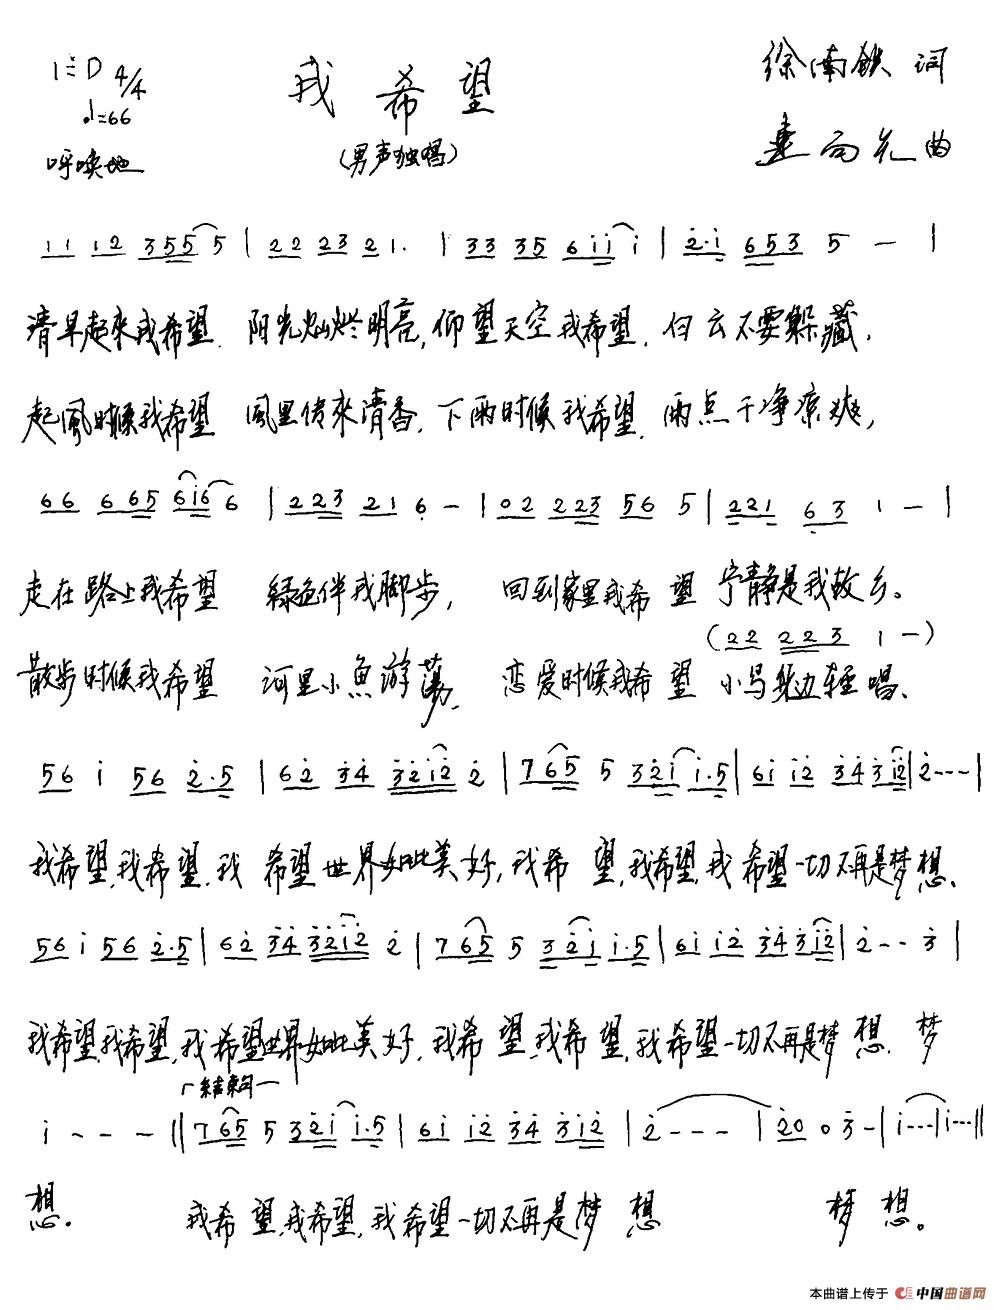 1=D 4/4
♩=66
呼唤地
我希望
(男声独唱)
徐南铁 词
曲
11 12 355 5 | 22 23 21. | 33 35 6i̇i̇ i̇ | 2̇.i̇ 653 5 — |
清早起来我希望. 阳光灿烂明亮,仰望天空我希望. 白云不要躲藏,
起風时候我希望 風里传來清香,下雨时候我希望. 雨点干净凉爽,
66 665 6i̇6 6 | 223 21 6̣ — | 02 223 56 5 | 221 6̣3 1 — |
走在路上我希望 绿色伴我脚步, 回到家里我希望 宁静是我故乡。
(22 223 1 —)
散步时候我希望 河里小魚游蕩, 恋爱时候我希望 小鸟身边轻唱、
56 i̇ 56 2̇.5 | 62̇ 3̇4̇ 3̇2̇i̇2̇ 2̇ | 765 5 32̇i̇ i̇.5 | 6i̇ i̇2̇ 3̇4̇3̇i̇2̇ | 2̇--- |
我希望,我希望.我希望世界如此美好,我希望,我希望,我希望一切不再是梦想、
56 i̇ 56 2̇.5 | 62̇ 3̇4̇ 3̇2̇i̇2̇ 2̇ | 765 5 32̇i̇ i̇.5 | 6i̇ i̇2̇ 3̇4̇3̇i̇2̇ | 2̇-- 3̇ |
我希望,我希望,我希望世界如此美好,我希望,我希望,我希望一切不再是梦想. 梦
┌结束句—
i̇ - - - ‖ 765 5 32̇i̇ i̇.5 | 6i̇ i̇2̇ 3̇4̇ 3̇i̇2̇ | 2̇--- | 2̇0 0 3̇ - | i̇--- | i̇--- ‖
想. 我希望,我希望,我希望一切不再是梦想 梦想。
本曲谱上传于 中国曲谱网